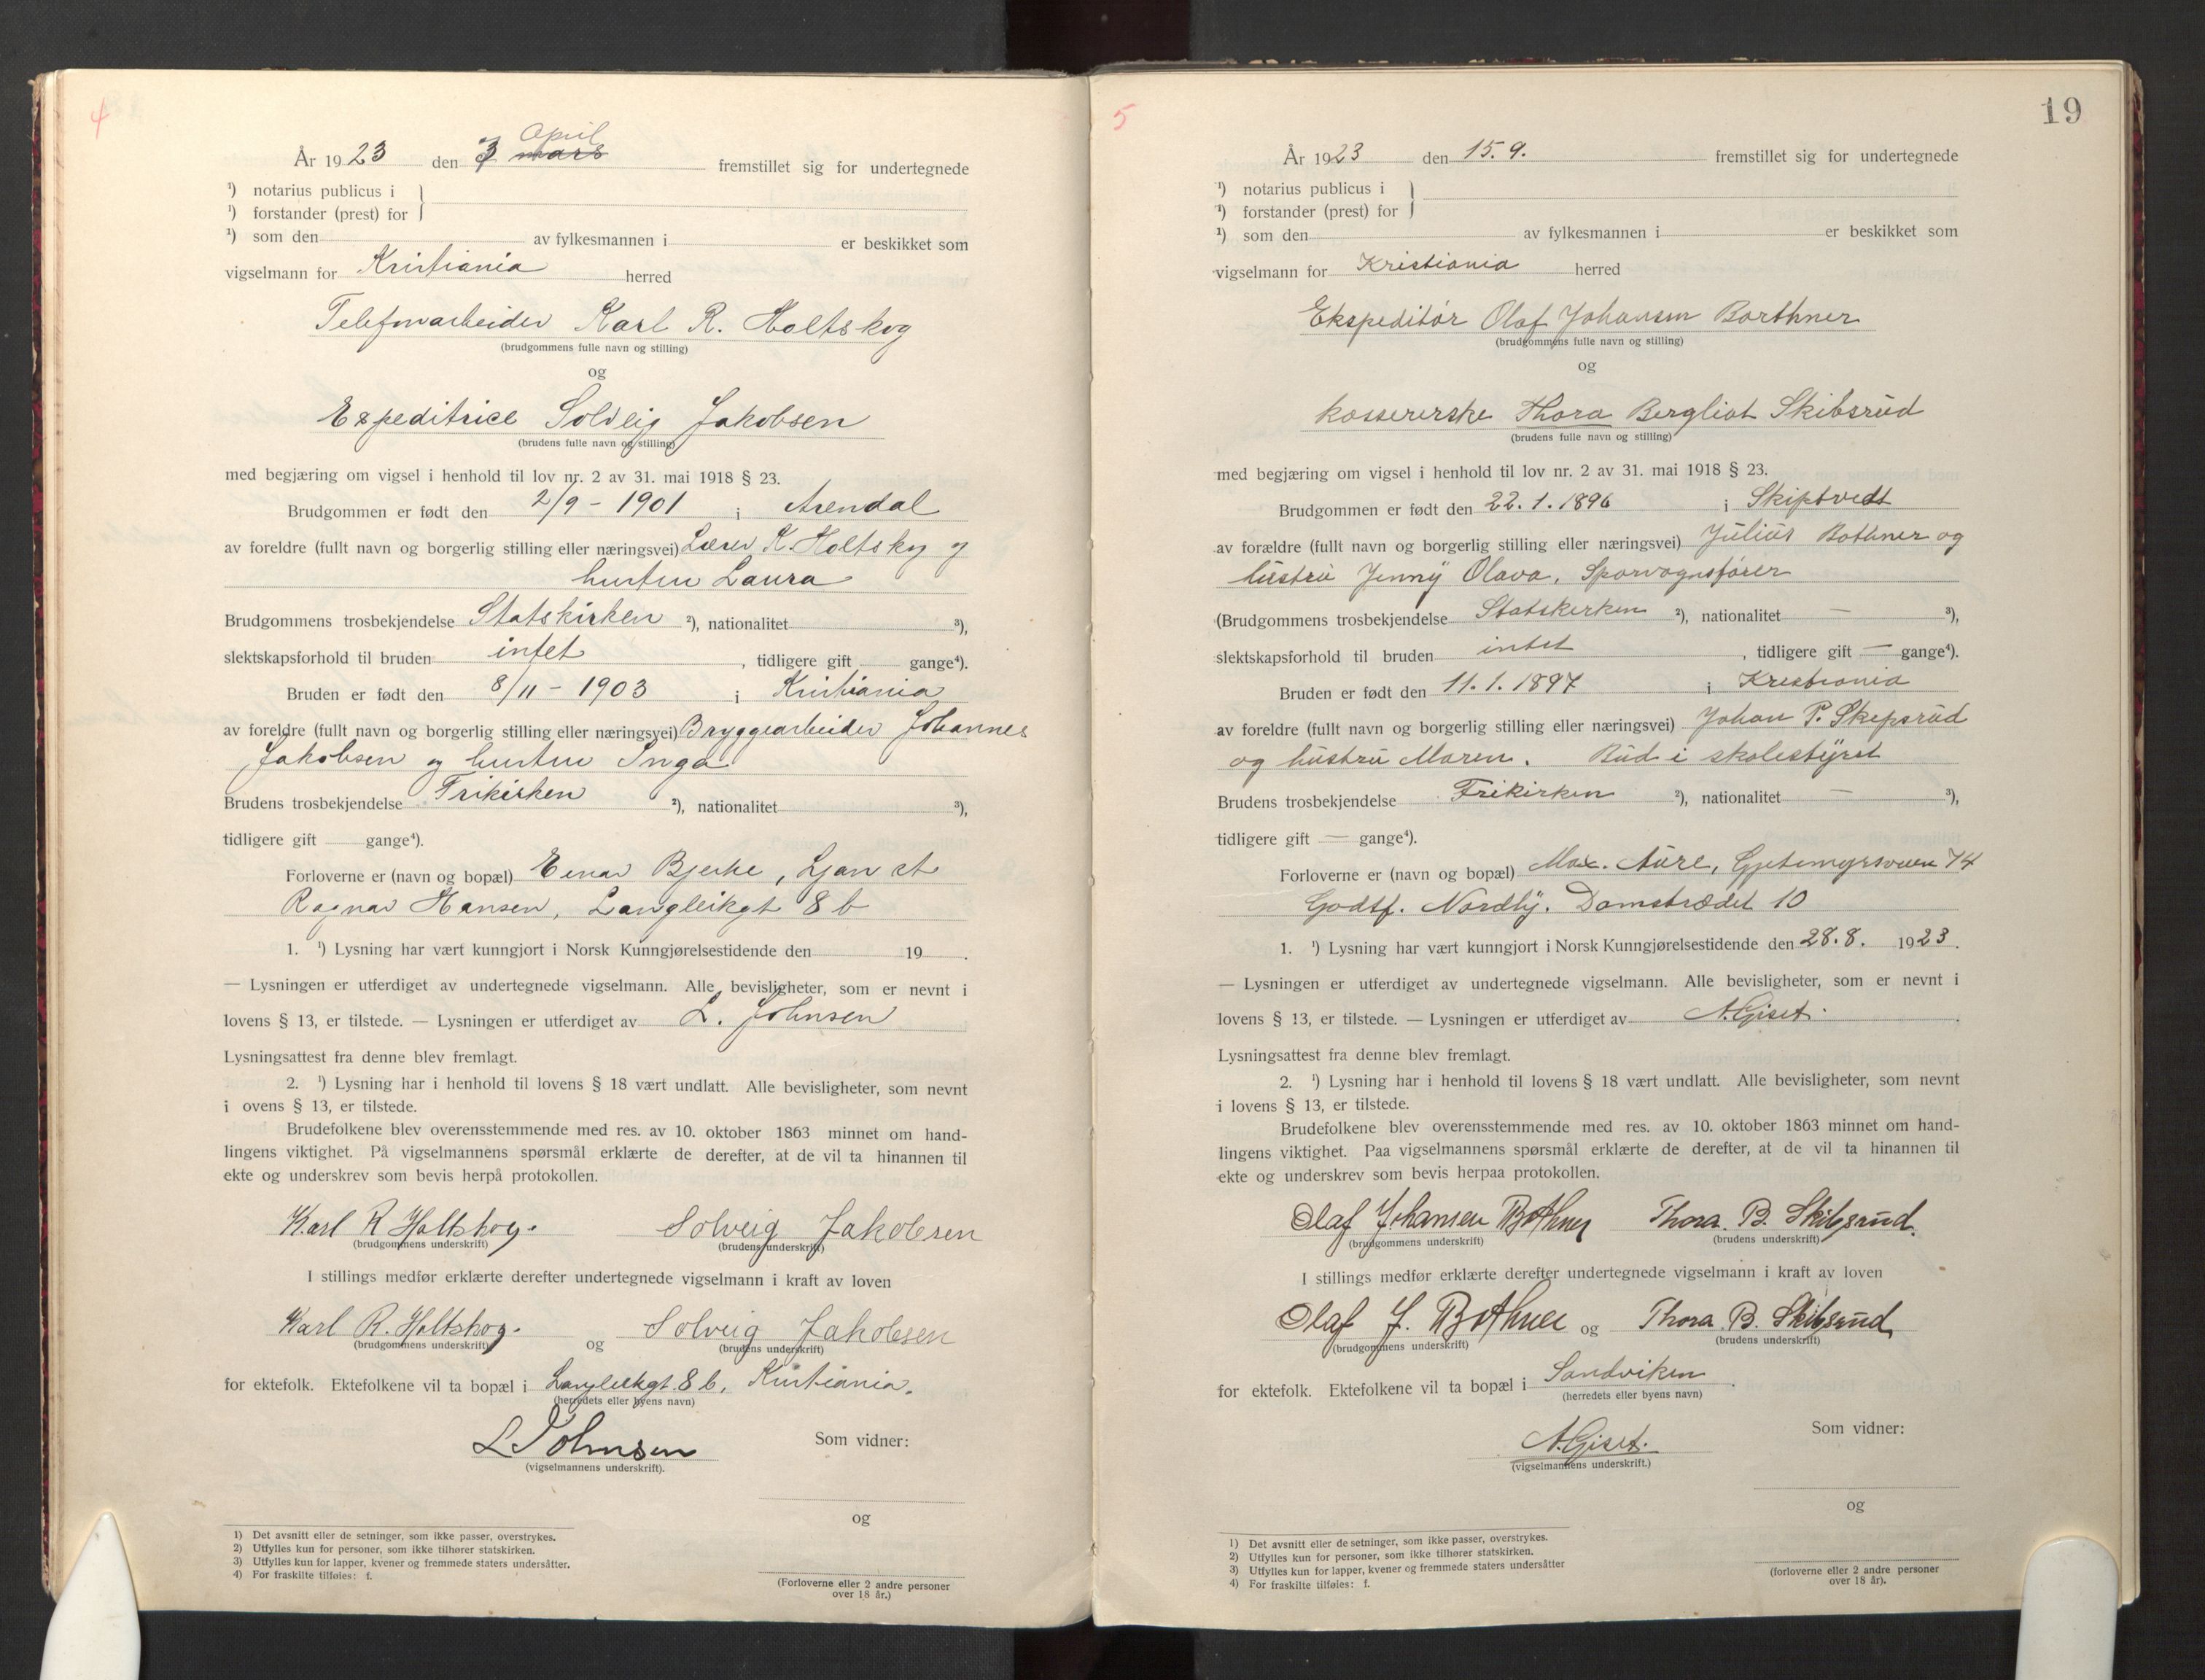 4
April
År 1923 den 3 mars fremstillet sig for undertegnede
¹) notarius publicus i
¹) forstander (prest) for
¹) som den av fylkesmannen i er beskikket som
vigselmann for Kristiania herred
Telefonarbeider Karl R. Holtskog
(brudgommens fulle navn og stilling)
og
Expeditrice Solveig Jakobsen
(brudens fulle navn og stilling)
med begjæring om vigsel i henhold til lov nr. 2 av 31. mai 1918 § 23.
Brudgommen er født den 2/9 - 1901 i Arendal
av foreldre (fullt navn og borgerlig stilling eller næringsvei) Lærer K. Holtskog og
hustru Laura
Brudgommens trosbekjendelse Statskirken ²), nationalitet ³),
slektskapsforhold til bruden intet, tidligere gift gange⁴).
Bruden er født den 8/11 - 1903 i Kristiania
av foreldre (fullt navn og borgerlig stilling eller næringsvei) Bryggearbeider Johannes
Jakobsen og hustru Inga
Brudens trosbekjendelse Frikirken ²), nationalitet ³),
tidligere gift gange⁴).
Forloverne er (navn og bopæl) Einar Bjerke, Ljan st
Ragnar Hansen, Langleikgt 8 b
1. ¹) Lysning har vært kunngjort i Norsk Kunngjørelsestidende den 19 .
— Lysningen er utferdiget av undertegnede vigselmann. Alle bevisligheter, som er nevnt i
lovens § 13, er tilstede. — Lysningen er utferdiget av L. Johnsen
Lysningsattest fra denne blev fremlagt.
2. ¹) Lysning har i henhold til lovens § 18 vært undlatt. Alle bevisligheter, som nevnt
i ovens § 13, er tilstede.
Brudefolkene blev overensstemmende med res. av 10. oktober 1863 minnet om hand-
lingens viktighet. På vigselmannens spørsmål erklærte de derefter, at de vil ta hinannen til
ekte og underskrev som bevis herpå protokollen.
Karl R Holtskog. Solveig Jakobsen
(brudgommens underskrift) (brudens underskrift)
I stillings medfør erklærte derefter undertegnede vigselmann i kraft av loven
Karl R. Holtskog. og Solveig Jakobsen
(brudgommens underskrift) (brudens underskrift)
for ektefolk. Ektefolkene vil ta bopæl i Langleikgt. 8 b, Kristiania.
(herredets eller byens navn)
L Johnsen Som vidner:
(vigselmannens underskrift).
og
1) Det avsnitt eller de setninger, som ikke passer, overstrykes.
2) Utfylles kun for personer, som ikke tilhører statskirken.
3) Utfylles kun for lapper, kvener og fremmede staters undersåtter.
4) For fraskilte tilføies: f.
(Forloverne eller 2 andre personer
over 18 år.)
5
19
År 1923 den 15. 9. fremstillet sig for undertegnede
¹) notarius publicus i
¹) forstander (prest) for
¹) som den av fylkesmannen i er beskikket som
vigselmann for Kristiania herred
Ekspeditør Olaf Johansen Borthner
(brudgommens fulle navn og stilling)
og
kassererske Thora Bergliot Skibsrud
(brudens fulle navn og stilling)
med begjæring om vigsel i henhold til lov nr. 2 av 31. mai 1918 § 23.
Brudgommen er født den 22. 1. 1896 i Skiptvedt
av forældre (fullt navn og borgerlig stilling eller næringsvei) Julius Bothner og
hustru Jenny Olava, Sporvognsfører
(Brudgommens trosbekjendelse Statskerken ²), nationalitet — ³),
slektskapsforhold til bruden intet, tidligere gift — gange⁴).
Bruden er født den 11. 1. 1897 i Krestiania
av foreldre (fullt navn og borgerlig stilling eller næringsvei) Johan P. Skepsrud
og hustru Maren. Bud i skolestyret
Brudens trosbekjendelse Frikirken ²), nationalitet — ³),
tidligere gift — gange⁴).
Forloverne er (navn og bopæl) Max. Aure, Gjetemyrsveien 74
Godtf. Nordby. Damstrædet 10
1. ¹) Lysning har vært kunngjort i Norsk Kunngjørelsestidende den 28. 8. 1923.
— Lysningen er utferdiget av undertegnede vigselmann. Alle bevisligheter, som er nevnt i
lovens § 13, er tilstede. — Lysningen er utferdiget av A. Giset.
Lysningsattest fra denne blev fremlagt.
2. ¹) Lysning har i henhold til lovens § 18 vært undlatt. Alle bevisligheter, som nevnt
i lovens § 13, er tilstede.
Brudefolkene blev overensstemmende med res. av 10. oktober 1863 minnet om hand-
lingens viktighet. Paa vigselmannens spørsmål erklærte de derefter, at de vil ta hinannen til
ekte og underskrev som bevis herpaa protokollen.
Olaf Johansen Bothner Thora. B. Skibsrud.
(brudgommens underskrift) (brudens underskrift)
I stillings medfør erklærte derefter undertegnede vigselmann i kraft av loven
Olaf J. Bothner og Thora. B. Skibsrud
(brudgommens underskrift) (brudens underskrift)
for ektefolk. Ektefolkene vil ta bopæl i Sandviken.
(herredets eller byens navn)
A. Giset. Som vidner:
(vigselmannens underskrift.)
og
1) Det avsnitt eller de setninger, som ikke passer, overstrykes.
2) Utfylles kun for personer, som ikke tilhører statskirken.
3) Utfylles kun for lapper, kvener og fremmede staters undersåtter
4) For fraskilte tilføies: f.
(forloverne eller 2 andre personer
over 18 år).